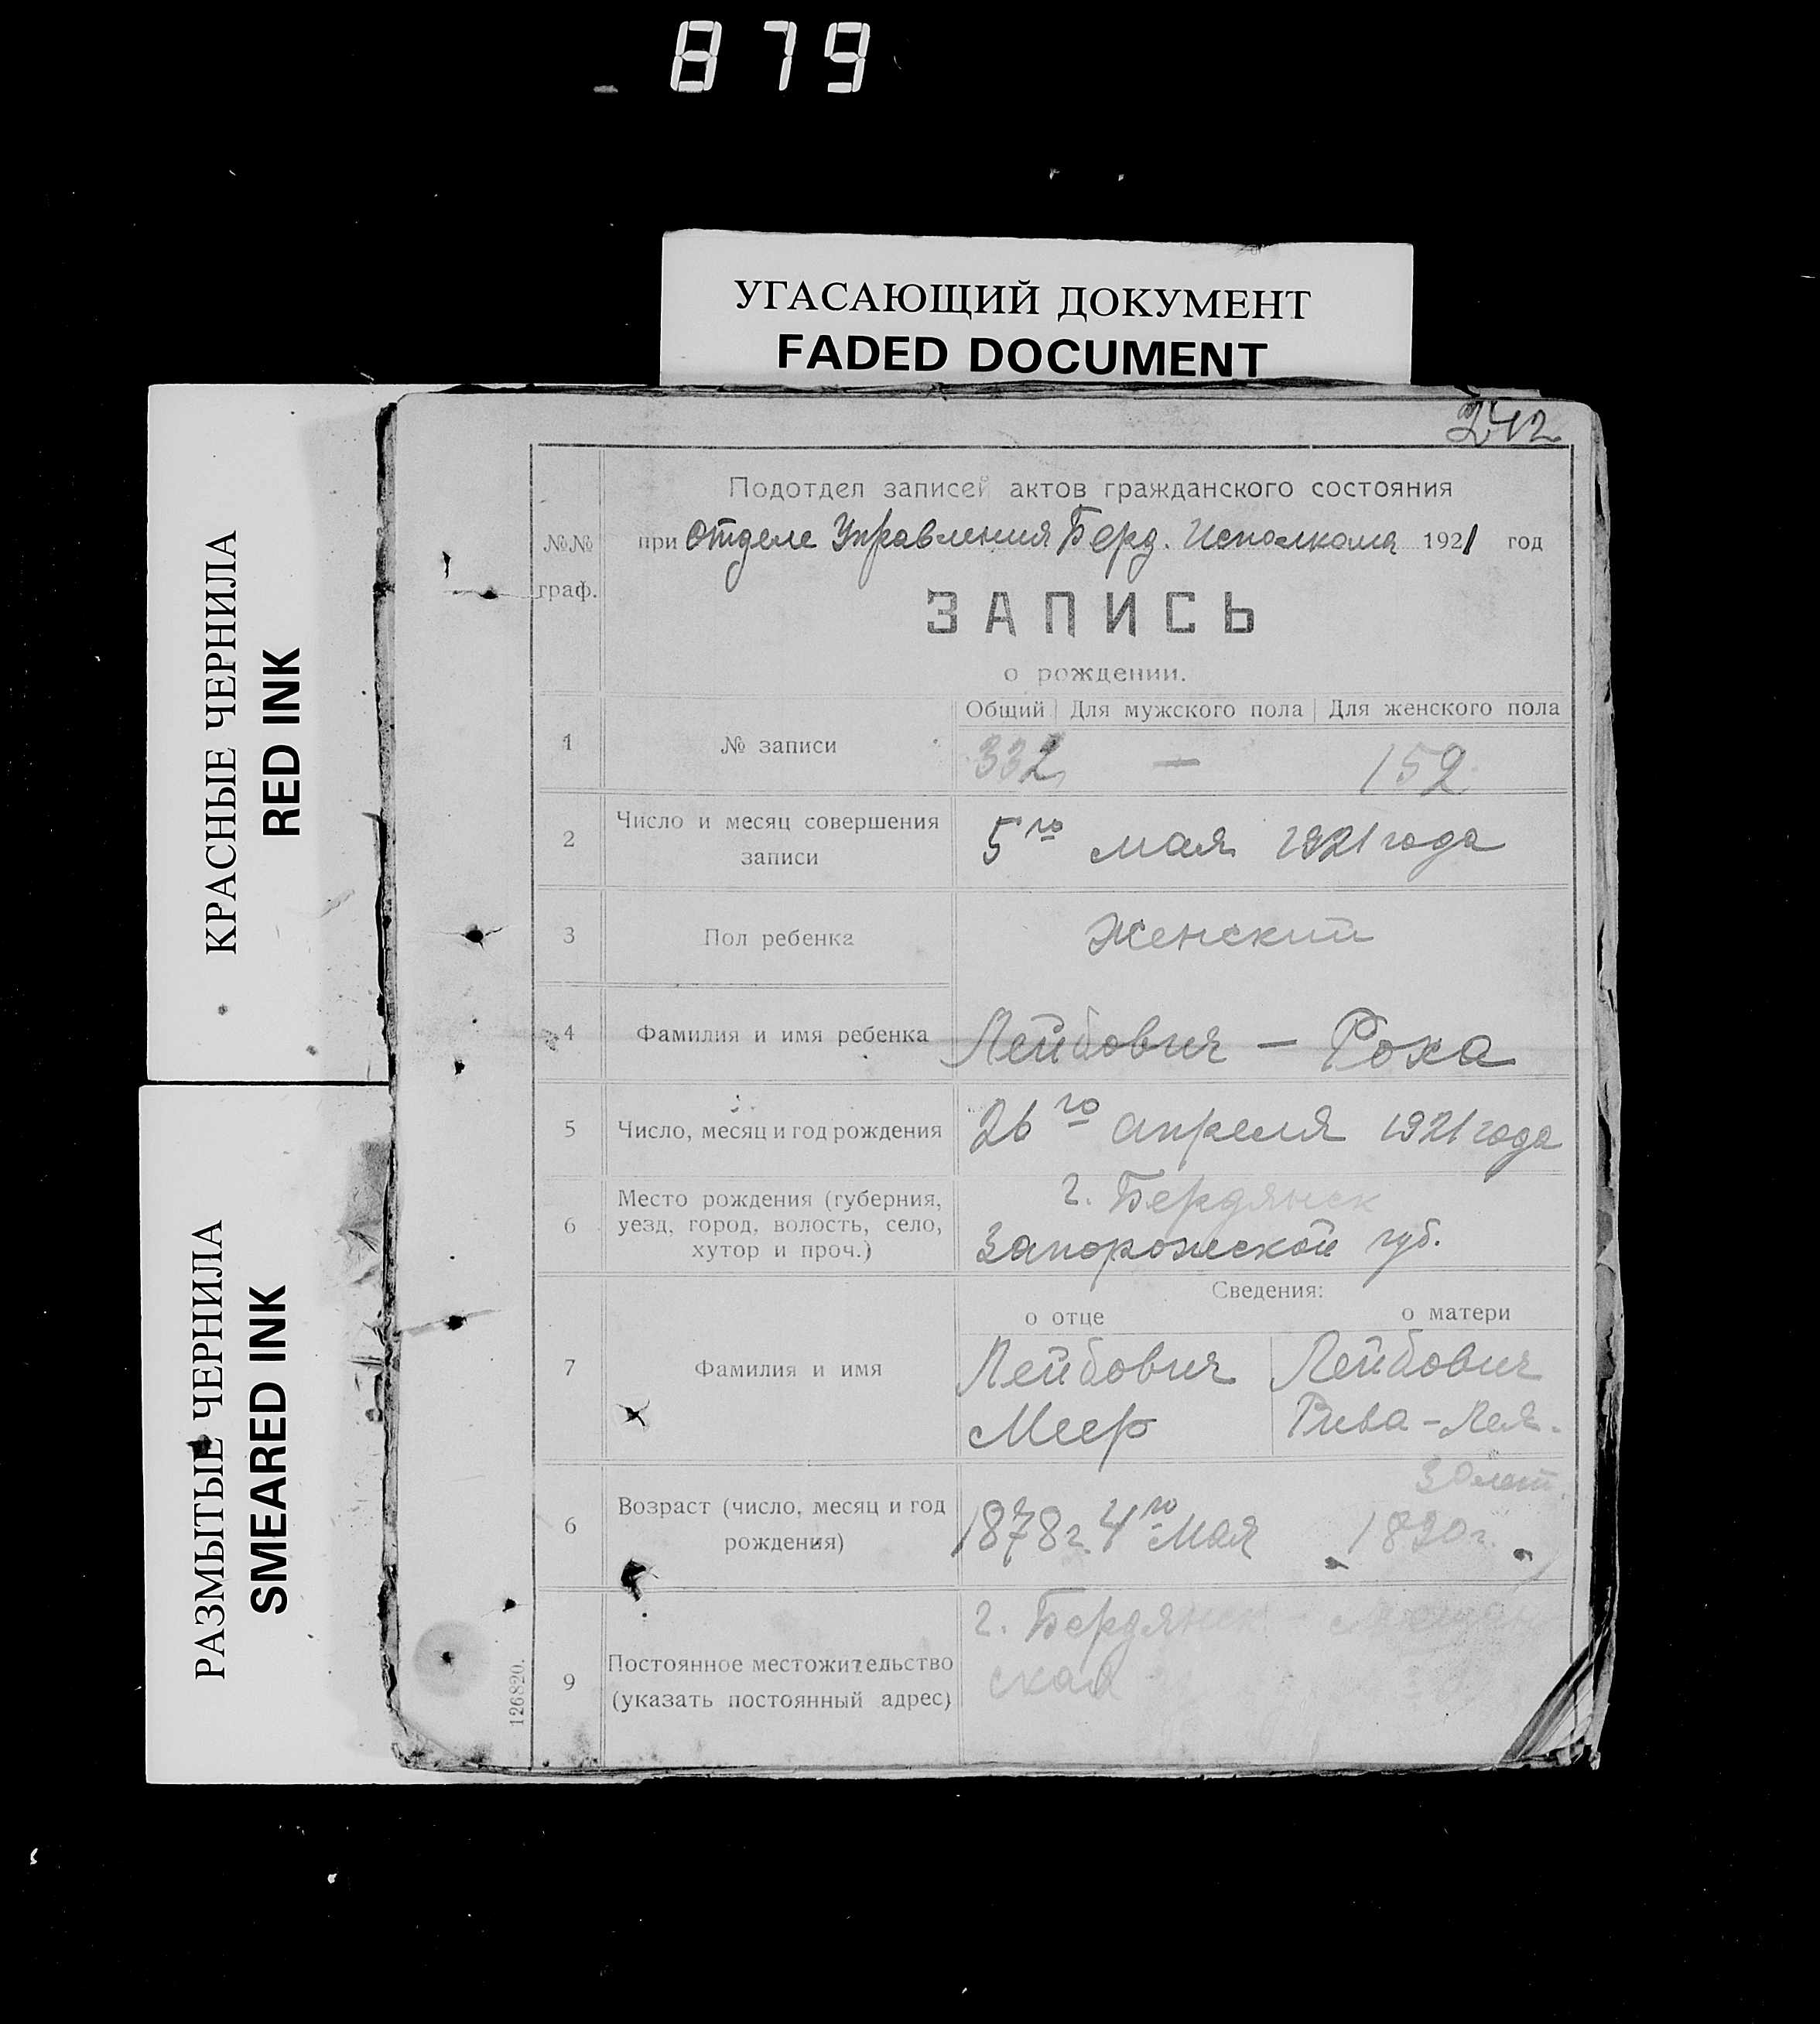 879
УГАСАЮЩИЙ ДОКУМЕНТ
FADED DOCUMENT
КРАСНЫЕ ЧЕРНИЛА
RED INK
РАЗМЫТЫЕ ЧЕРНИЛА
SMEARED INK
242
Подотдел записей актов гражданского состояния
№№ граф.
при Отделе Управления Берд. Исполкома 1921 год
ЗАПИСЬ
о рождении.
Общий Для мужского пола Для женского пола
1 № записи 332 — 152
2 Число и месяц совершения записи 5го мая 1921 года
3 Пол ребенка Женский
4 Фамилия и имя ребенка Лейбович — Роха
5 Число, месяц и год рождения 26го апреля 1921 года
6 Место рождения (губерния, уезд, город, волость, село, хутор и проч.) г. Бердянск
Запорожской губ.
Сведения:
о отце о матери
7 Фамилия и имя Лейбович Лейбович
Меер Рива-Лея.
30 лет.
6 Возраст (число, месяц и год рождения) 1878 г. 4го мая
9 Постоянное местожительство (указать постоянный адрес) г. Бердянск
ская
126820.